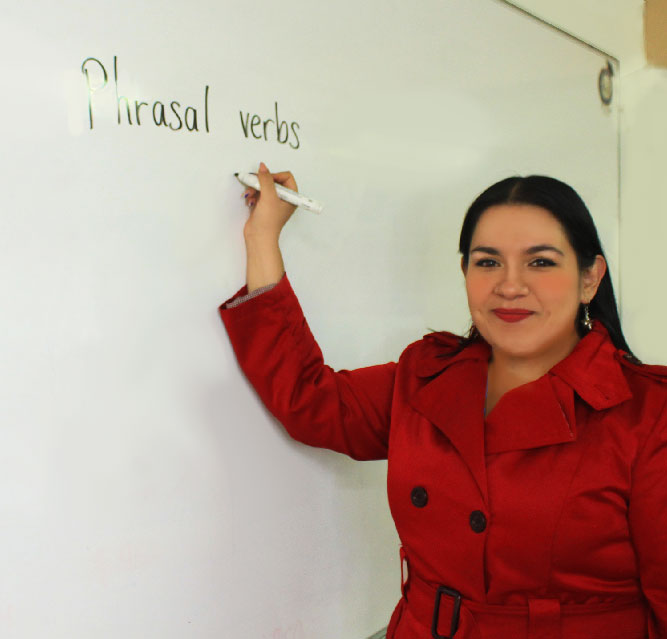 Phrasal verbs